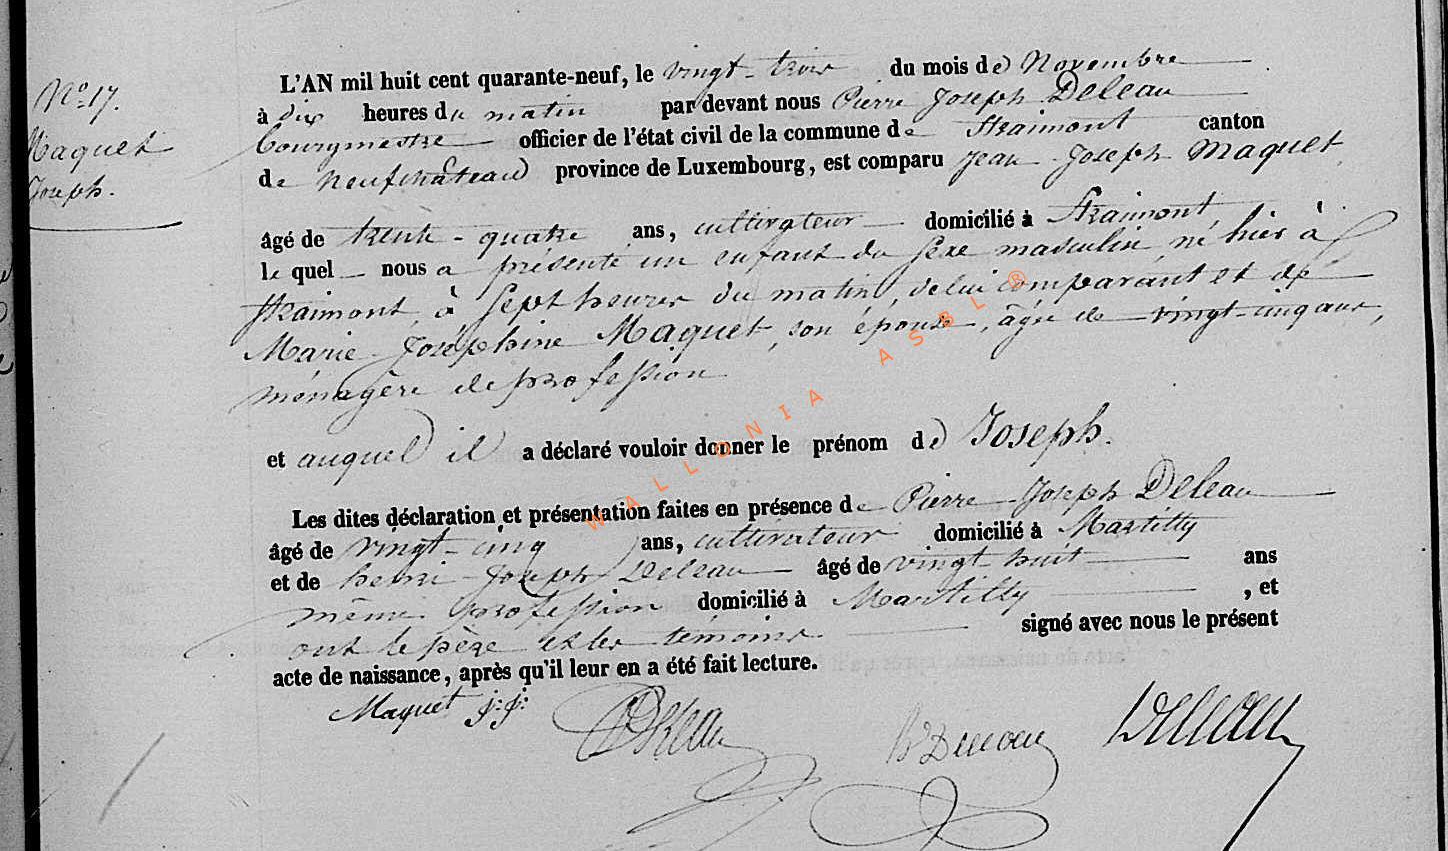 N° 17.
Maquet
Joseph.
L'AN mil huit cent quarante-neuf, le vingt-trois du mois de Novembre
à dix heures du matin par devant nous Pierre Joseph Deleau
bourgmestre officier de l'état civil de la commune de Straimont canton
de neufchâteau province de Luxembourg, est comparu Jean Joseph Maquet
âgé de trente-quatre ans, cultivateur domicilié à Straimont,
le quel nous a présenté un enfant du sexe masculin né hier à
Straimont, à sept heures du matin, de lui comparant et de
Marie Joséphine Maquet, son épouse, âgée de vingt-cinq ans,
ménagère de profession
et auquel il a déclaré vouloir donner le prénom de Joseph.
Les dites déclaration et présentation faites en présence de Pierre Joseph Deleau
âgé de vingt-cinq ans, cultivateur domicilié à Martilly
et de henri Joseph Deleau âgé de vingt huit ans
même profession domicilié à Martilly, et
ont le père et les témoins signé avec nous le présent
acte de naissance, après qu'il leur en a été fait lecture.
Maquet j: j: Deleau Deleau
WALLONIA ASBL ®